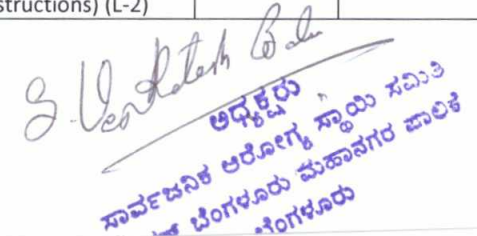 structions) (L-2)
S. Venkatesh Babu
ಅಧ್ಯಕ್ಷರು
ಸಾರ್ವಜನಿಕ ಆರೋಗ್ಯ ಸ್ಥಾಯಿ ಸಮಿತಿ
ಬೆಂಗಳೂರು ಮಹಾನಗರ ಪಾಲಿಕೆ
ಬೆಂಗಳೂರು